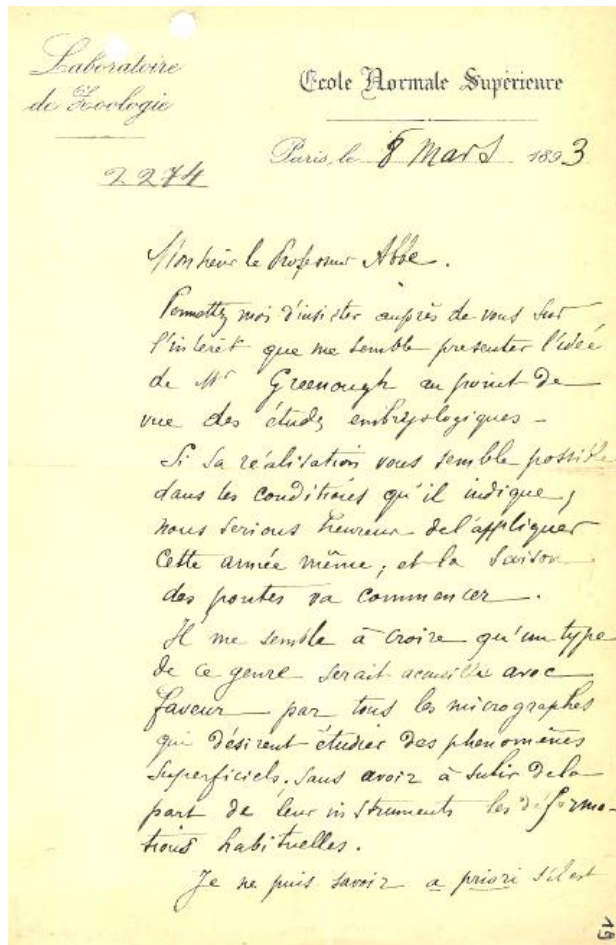 Laboratoire
de Zoologie
Ecole Normale Supérieure
Paris, le 8 Mars 1893
2274
Monsieur le Professeur Abbe.
Permettez moi d'insister auprès de vous sur
l'intérêt que me semble presenter l'ideé
de Mr Greenough au point de
vue des études embryologiques -
Si sa réalisation vous semble possible
dans les conditions qu'il indique,
nous serions heureux de l'appliquer
cette année même, et la saison
des pontes va commencer.
Il me semble à croire qu'un type
de ce genre serait accueilli avec
faveur par tous les micrographes
qui désirent étudier des phenomènes
superficiels. sans avoir à subir de la
part de leur instruments les déforma-
tions habituelles.
Je ne puis savoir a priori s'il est